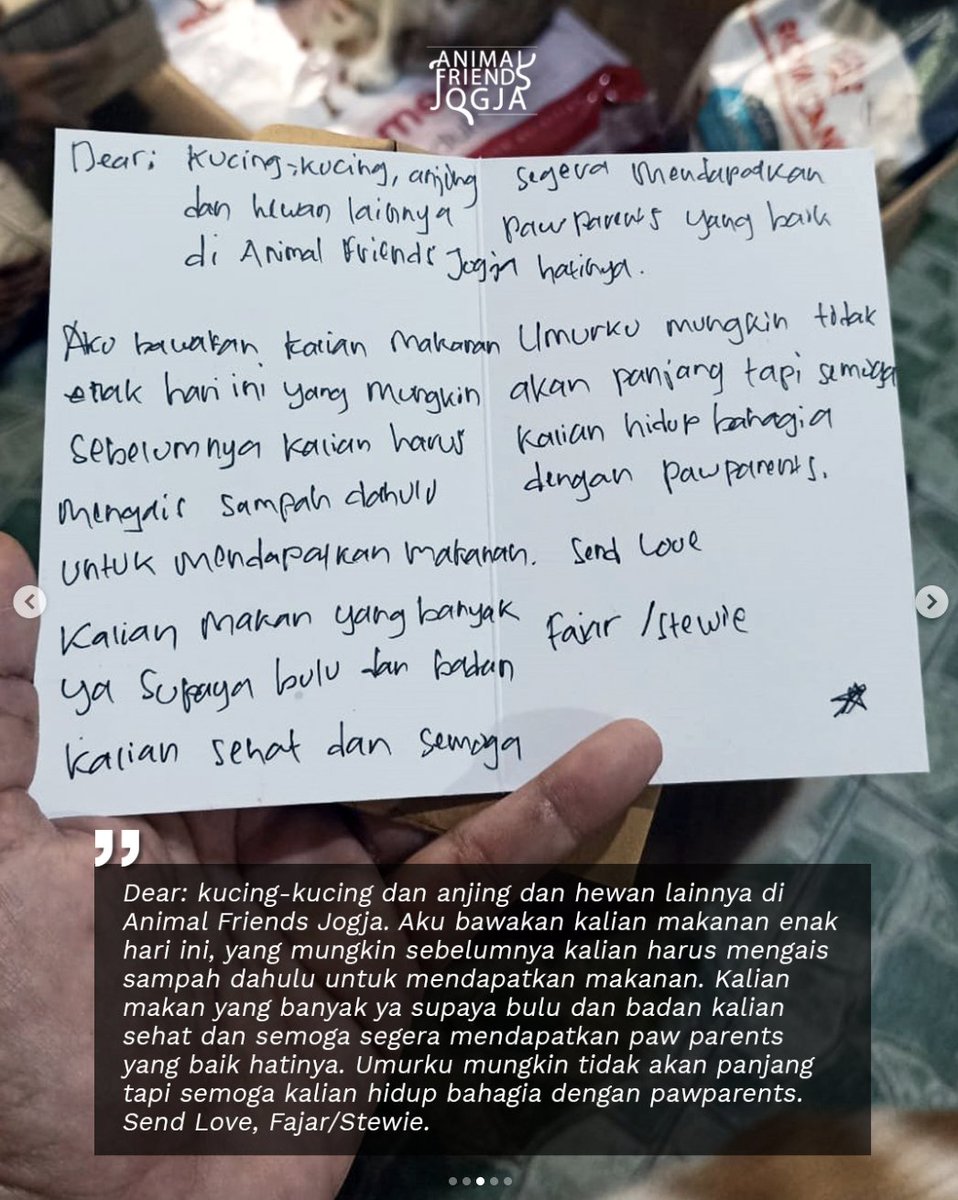 ANIMAL
FRIENDS
JOGJA
Dear; kucing-kucing, anjing
dan hewan lainnya
di Animal Friends Jogja
Aku bawakan kalian makanan
enak hari ini yang mungkin
sebelumnya kalian harus
mengais sampah dahulu
untuk mendapatkan makanan.
Kalian makan yang banyak
ya supaya bulu dan badan
kalian sehat dan semoga
segera mendapatkan
pawparents yang baik
hatinya.
Umurku mungkin tidak
akan panjang tapi semoga
kalian hidup bahagia
dengan pawparents.
Send Love
Fajar /Stewie
Dear: kucing-kucing dan anjing dan hewan lainnya di
Animal Friends Jogja. Aku bawakan kalian makanan enak
hari ini, yang mungkin sebelumnya kalian harus mengais
sampah dahulu untuk mendapatkan makanan. Kalian
makan yang banyak ya supaya bulu dan badan kalian
sehat dan semoga segera mendapatkan paw parents
yang baik hatinya. Umurku mungkin tidak akan panjang
tapi semoga kalian hidup bahagia dengan pawparents.
Send Love, Fajar/Stewie.